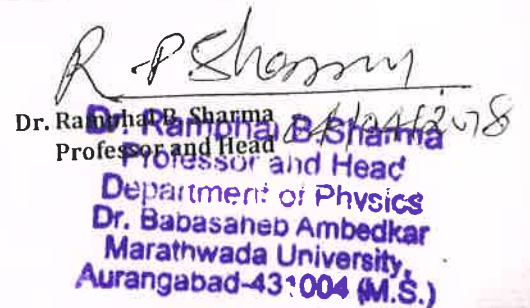 R P Sharma
Dr. Ramphal B. Sharma
Professor and Head
Dr. Ramphal B Sharma
Professor and Head
Department of Physics
Dr. Babasaheb Ambedkar
Marathwada University,
Aurangabad-431004 (M.S.)